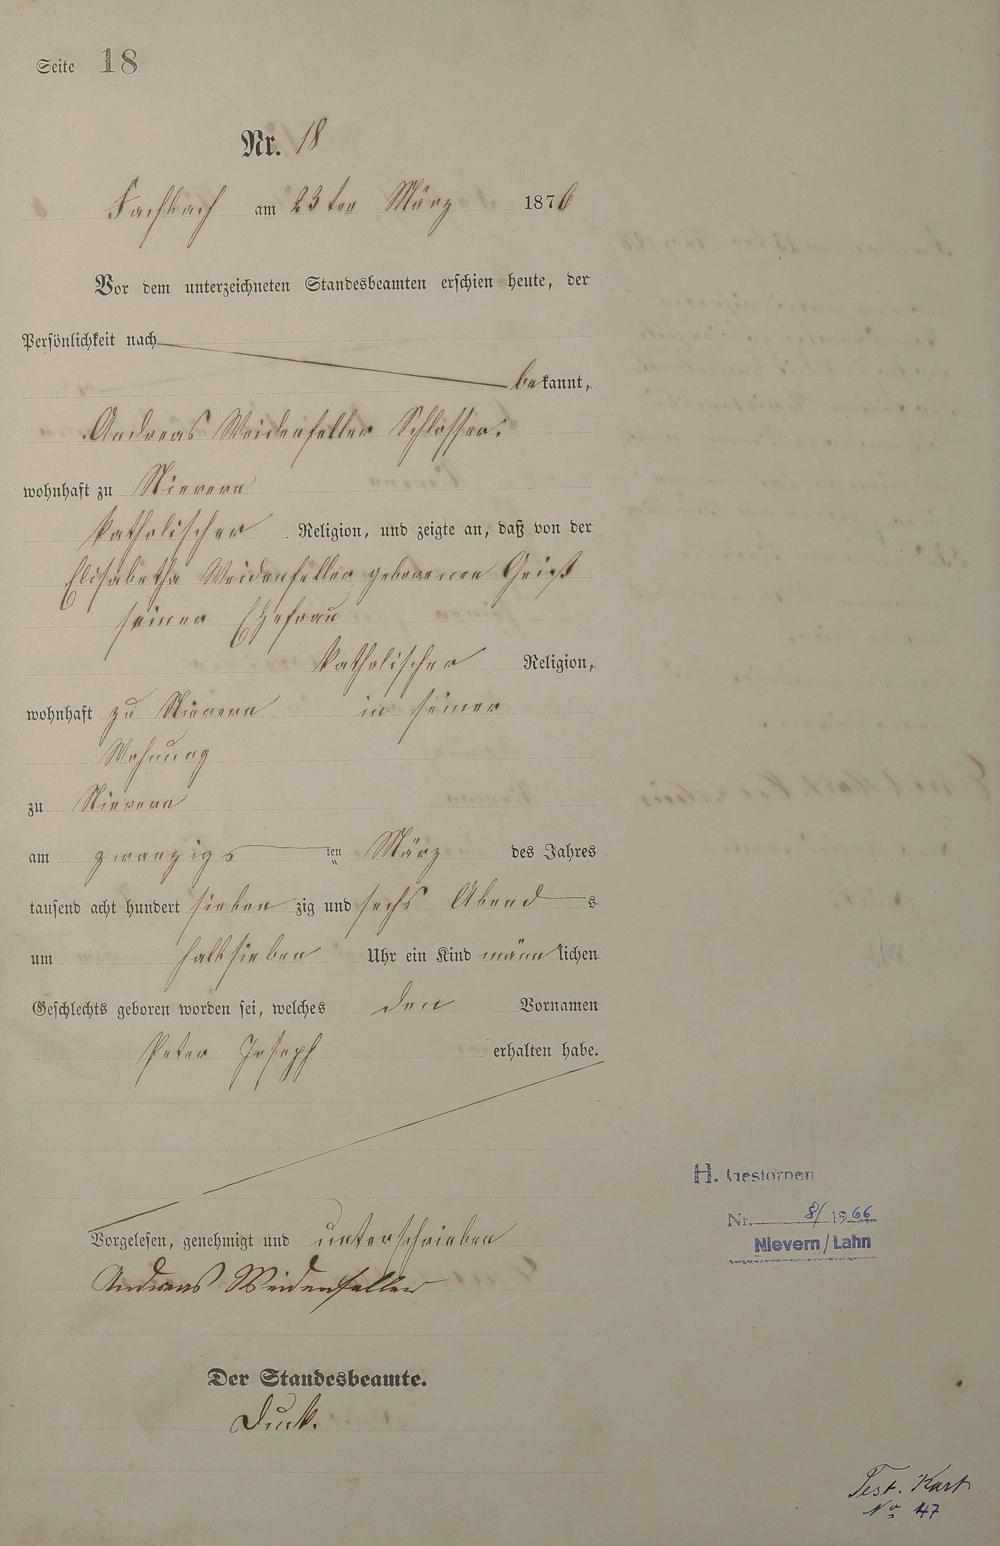 Seite 18
Nr. 18
Fachbach am 23ten März 1876
Vor dem unterzeichneten Standesbeamten erschien heute, der
Persönlichkeit nach
bekannt,
Andreas Weidenfeller Schlosser.
wohnhaft zu Nievern
katholischer Religion, und zeigte an, daß von der
Elisabetha Weidenfeller geborenen Geiß
seiner Ehefrau
katholischer Religion,
wohnhaft zu Nievern in seiner
Wohnung
zu Nievern
am zwanzigsten März des Jahres
tausend acht hundert siebenzig und sechs Abends
um halbsieben Uhr ein Kind männlichen
Geschlechts geboren worden sei, welches den Vornamen
Peter Joseph erhalten habe.
Vorgelesen, genehmigt und unterschrieben
Andreas Weidenfeller
Der Standesbeamte.
H. Gestorben
Nr. 8/1966
Nievern/Lahn
Test. Kart
No 47